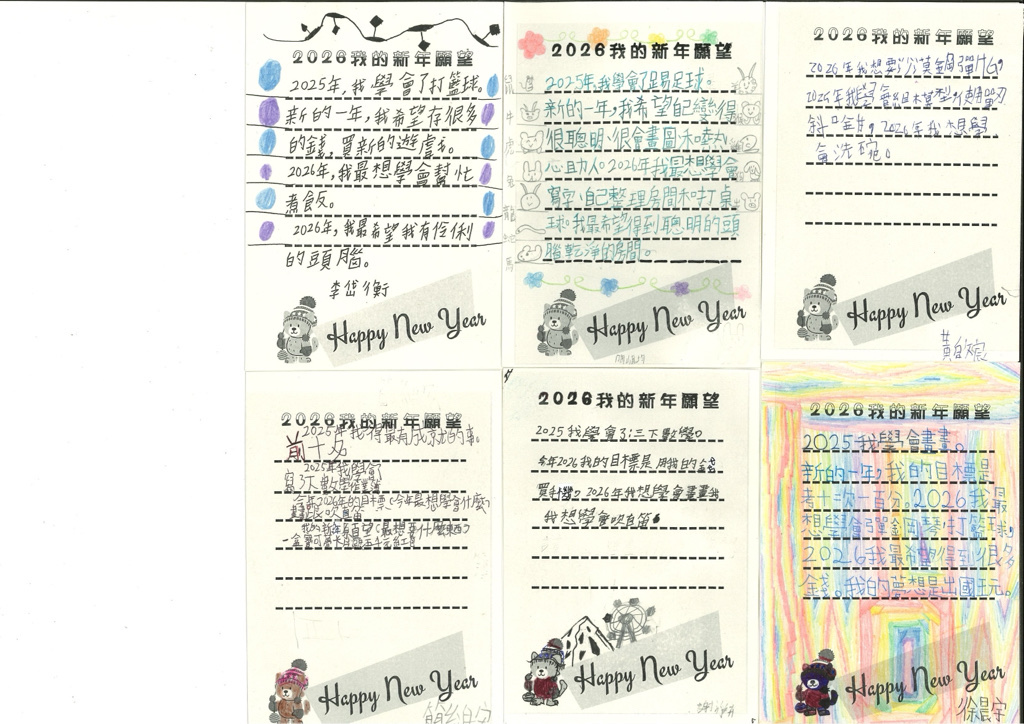 2026我的新年願望
2025年,我學會了打籃球。
新的一年,我希望存很多
的錢,買新的遊戲。
2026年,我最想學會幫忙
煮飯。
2026年,我最希望我有伶俐
的頭腦。
李岱衡
Happy New Year
2026我的新年願望
2025年我學會了踢足球。
新的一年,我希望自己變得
很聰明、很會畫圖和熱
心助人。2026年我最想學會
寫字、自己整理房間和打桌
球。我最希望得到聰明的頭
腦乾淨的房間。
鼠
牛
虎
兔
龍
蛇
馬
Happy New Year
2026我的新年願望
2026年我想要
2025年我學會組模型,使用
2026年我想學
會洗碗。
Happy New Year
黃
2026我的新年願望
2025年我得最有成就的事。
前十名
2025年我學會了
寫了大數學
今年2026年的目標?今年最想學會什麼?
畫畫跟吹直笛
我的新年願望(最想要什麼東西?
Happy New Year
2026我的新年願望
2025我學會了三下數學。
今年2026我的目標是用我的錢
買 2026年我想學會畫畫
我想學會吹直笛。
Happy New Year
2026我的新年願望
2025我學會畫畫。
新的一年,我的目標是
考十二次一百分。2026我最
想學會彈鋼琴、打籃球,
2026我最希望得到很多
金錢。我的夢想是出國玩。
Happy New Year
徐晨宇